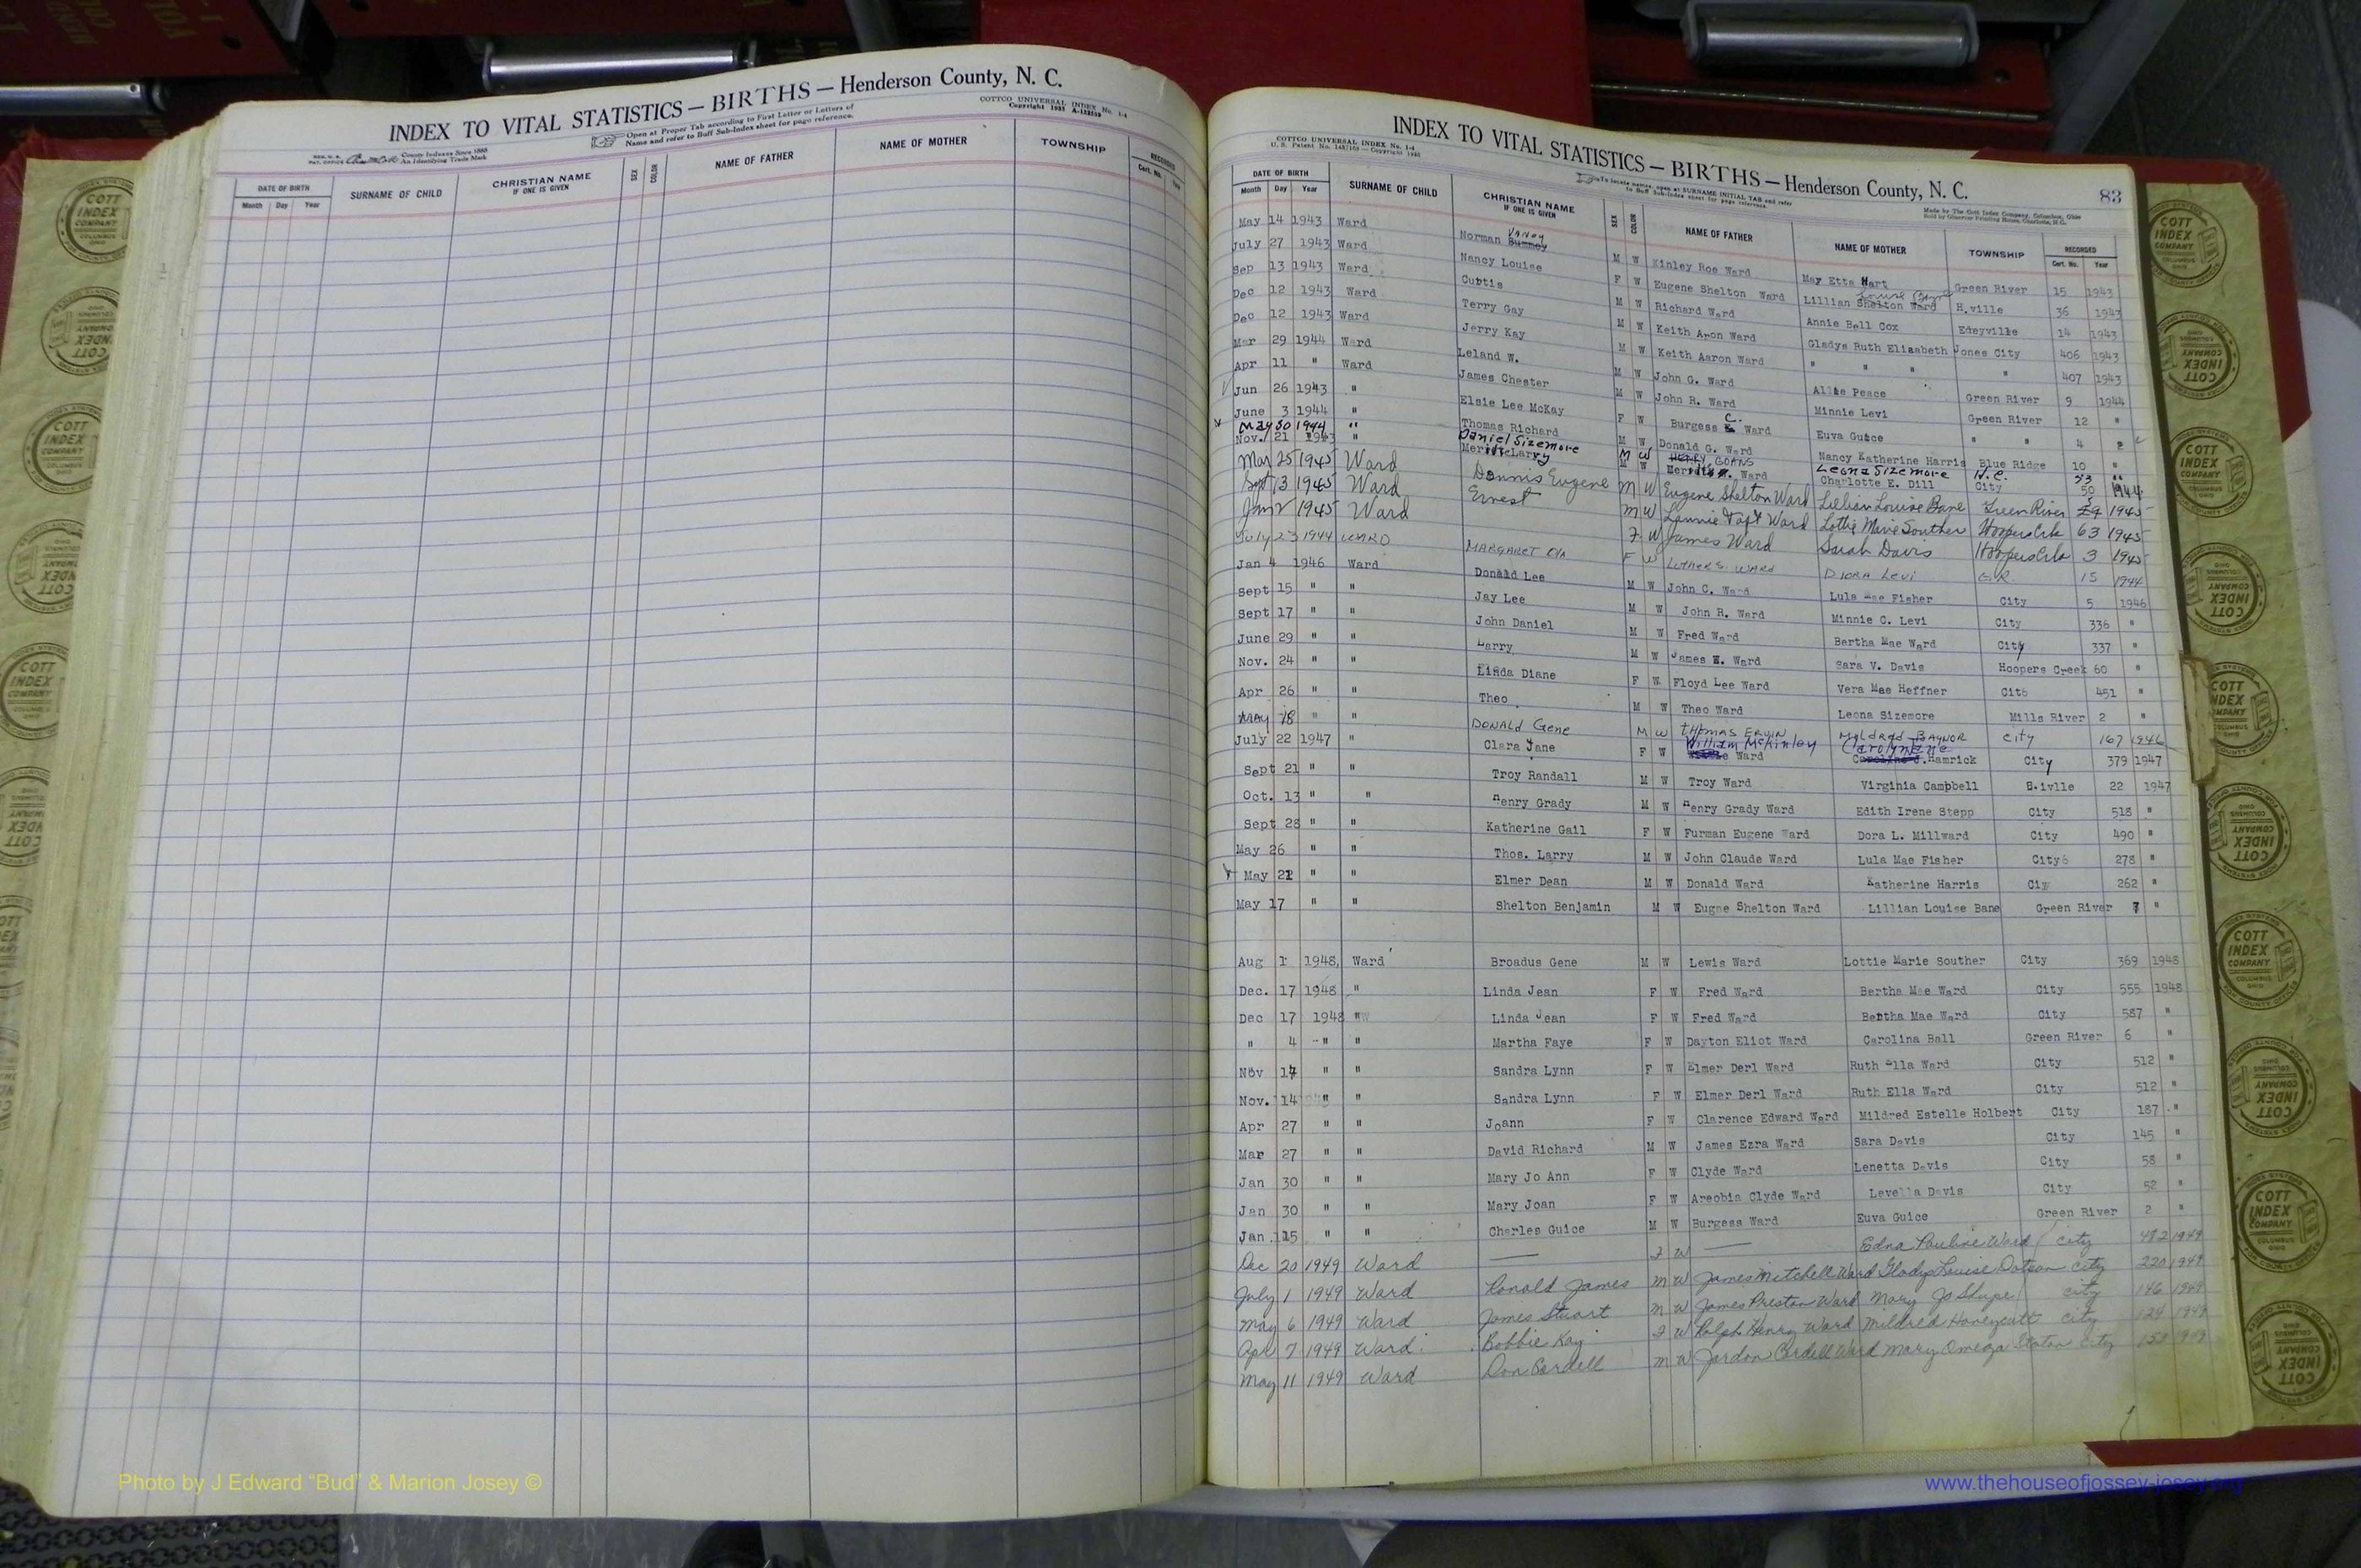 INDEX TO VITAL STATISTICS — BIRTHS — Henderson County, N. C.
COTTCO UNIVERSAL INDEX No. 1-4
Open at Proper Tab according to First Letter or Letters of
Name and refer to Buff Sub-Index sheet for page reference.
County Indexes Since 1888
An Identifying Trade Mark
DATE OF BIRTH SURNAME OF CHILD CHRISTIAN NAME IF ONE IS GIVEN SEX COLOR NAME OF FATHER NAME OF MOTHER TOWNSHIP RECORDED
Month Day Year Cert. No. Year
INDEX TO VITAL STATISTICS — BIRTHS — Henderson County, N. C. 83
COTTCO UNIVERSAL INDEX No. 1-4
Made by The Cott Index Company, Columbus, Ohio
DATE OF BIRTH SURNAME OF CHILD CHRISTIAN NAME IF ONE IS GIVEN SEX COLOR NAME OF FATHER NAME OF MOTHER TOWNSHIP RECORDED
Month Day Year Cert. No. Year
May 14 1943 Ward Norman Vancy M W Kinley Roe Ward May Etta Hart Green River 15 1943
July 27 1943 Ward Nancy Louise F W Eugene Shelton Ward Lillian Shelton Ward H.ville 36 1943
Sep 13 1943 Ward Curtis M W Richard Ward Annie Bell Cox Edeyville 14 1943
Dec 12 1943 Ward Terry Gay M W Keith Aron Ward Gladys Ruth Elizabeth Jones City 406 1943
Dec 12 1943 Ward Jerry Kay M W Keith Aaron Ward " " " " 407 1943
Mar 29 1944 Ward Leland W. M W John G. Ward Allie Peace Green River 9 1944
Apr 11 " Ward James Chester M W John R. Ward Minnie Levi Green River 12 "
Jun 26 1943 " Elsie Lee McKay F W Burgess C. Ward Euva Guice " " 4
June 3 1944 " Thomas Richard M W Donald G. Ward Nancy Katherine Harris Blue Ridge 10 "
May 30 1944 " Daniel Sizemore M W Leona Sizemore H.C. 53 "
Nov. 21 1943 " Larry M W Ward Charlotte E. Dill City 50 1944
Mar 25 1945 Ward Dennis Eugene M W Eugene Shelton Ward Lillian Louise Bane Green River 1945
Sept 3 1945 Ward Ernest M W Lonnie Taft Ward Lottie Marie Souther Hoopers Crk 63 1945
Jan 1945 Ward F W James Ward Sarah Davis Hoopers Crk 3 1945
July 23 1944 WARD MARGARET F W LUTHER S. WARD DIORA LEVI G.R. 15 1944
Jan 4 1946 Ward Donald Lee M W John C. Ward Lula Mae Fisher City 5 1946
Sept 15 " " Jay Lee M W John R. Ward Minnie C. Levi City 336 "
Sept 17 " " John Daniel M W Fred Ward Bertha Mae Ward City 337 "
June 29 " " Larry M W James E. Ward Sara V. Davis Hoopers Creek 60 "
Nov. 24 " " Linda Diane F W Floyd Lee Ward Vera Mae Heffner City 451 "
Apr 26 " " Theo M W Theo Ward Leona Sizemore Mills River 2 "
May 18 " " DONALD Gene M W THOMAS ERVIN MILDRED BAYNOR City 167 1946
July 22 1947 " Clara Jane F W William McKinley Ward Carolyn Hamrick City 379 1947
Sept 21 " " Troy Randall M W Troy Ward Virginia Campbell H.ivlle 22 1947
Oct. 13 " " Henry Grady M W Henry Grady Ward Edith Irene Stepp City 518 "
Sept 28 " " Katherine Gail F W Furman Eugene Ward Dora L. Millward City 490 "
May 26 " " Thos. Larry M W John Claude Ward Lula Mae Fisher City 278 "
May 21 " " Elmer Dean M W Donald Ward Katherine Harris City 262 "
May 17 " " Shelton Benjamin M W Eugne Shelton Ward Lillian Louise Bane Green River 7 "
Aug 1 1948 Ward Broadus Gene M W Lewis Ward Lottie Marie Souther City 369 1948
Dec. 17 1948 " Linda Jean F W Fred Ward Bertha Mae Ward City 555 1948
Dec 17 1948 " Linda Jean F W Fred Ward Bertha Mae Ward City 587 "
" 4 " " Martha Faye F W Dayton Eliot Ward Carolina Ball Green River 6 "
Nov 14 " " Sandra Lynn F W Elmer Derl Ward Ruth Ella Ward City 512 "
Nov. 14 " " Sandra Lynn F W Elmer Derl Ward Ruth Ella Ward City 512 "
Apr 27 " " Joann F W Clarence Edward Ward Mildred Estelle Holbert City 187 "
Mar 27 " " David Richard M W James Ezra Ward Sara Davis City 145 "
Jan 30 " " Mary Jo Ann F W Clyde Ward Lenetta Davis City 58 "
Jan 30 " " Mary Joan F W Areobia Clyde Ward Levella Davis City 52 "
Jan 15 " " Charles Guice M W Burgess Ward Euva Guice Green River 2 "
Dec 20 1949 Ward — F W — Edna Pauline Ward City 492 1949
July 1 1949 Ward Ronald James M W James Mitchell Ward Gladys Louise Dotson City 220 1949
May 6 1949 Ward James Stuart M W James Preston Ward Mary Jo Shipe City 146 1949
Apr 7 1949 Ward Bobbie Kay F W Ralph Henry Ward Mildred Honeycutt City 124 1949
May 11 1949 Ward Don Cordell M W Jordon Cordell Ward Mary Omega Staton City 153 1949
Photo by J Edward "Bud" & Marion Josey ©
www.thehouseofjossey-josey.org
COTT INDEX COMPANY COLUMBUS OHIO